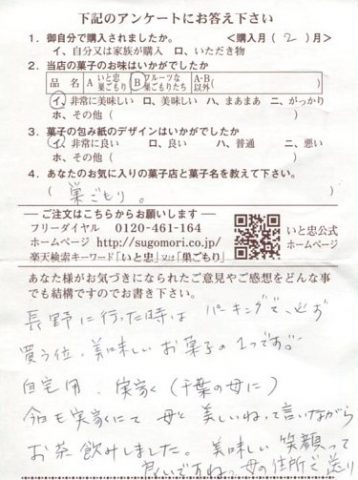 下記のアンケートにお答え下さい
1. 御自分で購入されましたか。 <購入月(2)月>
イ、自分又は家族が購入 ロ、いただき物
2. 当店の菓子のお味はいかがでしたか
品名 A いと忠巣ごもり B フルーツな巣ごもりたち A・B以外( )
イ、非常に美味しい ロ、美味しい ハ、まあまあ ニ、がっかり
ホ、その他( )
3. 菓子の包み紙のデザインはいかがでしたか
イ、非常に良い ロ、良い ハ、普通 ニ、悪い
ホ、その他( )
4. あなたのお気に入りの菓子店と菓子名を教えて下さい。
( 巣ごもり。 )
―ご注文はこちらからお願いします―
フリーダイヤル 0120-461-164
ホームページ http://sugomori.co.jp/
楽天検索キーワード「いと忠」又は「巣ごもり」
いと忠公式
ホームページ
あなた様がお気づきになられたご意見やご感想をどんな事
でも結構ですのでお書き下さい。
長野に行った時は パーキングで、必ず
買う位、美味しいお菓子の1つです。
自宅用、実家(千葉の母に)
今回も実家にて 母と 美しいねって言いながら
お茶飲みしました。美味しい 笑顔って
いいですねっ 母の住所で送り